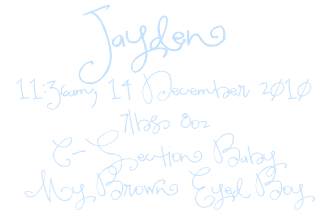 Jayden
11:36am, 14 December 2010
7lbs 8oz
C-Section Baby
My Brown Eyed Boy